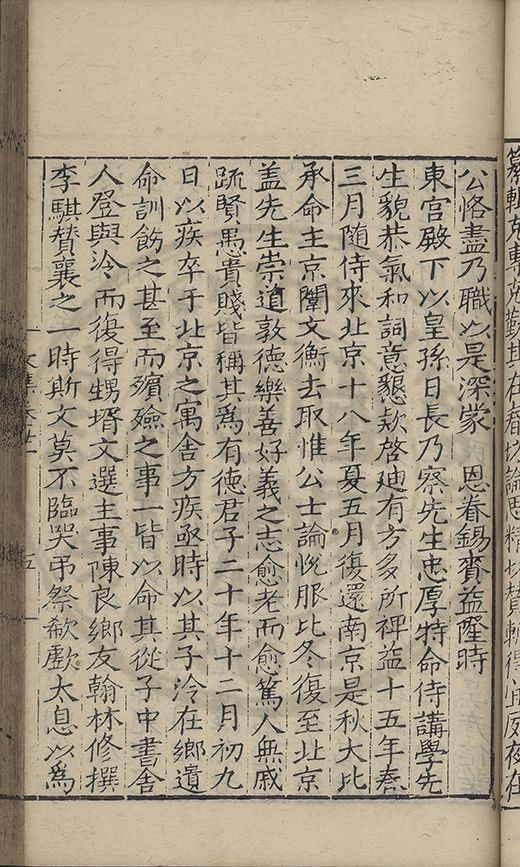 公恪盡乃職以是深蒙　恩眷錫賚益隆時
東宮殿下以皇孫日長乃察先生忠厚特命侍講學先
生貌恭氣和詞意懇欵啓廸有方多所裨益十五年春
三月随侍來北京十八年夏五月復還南京是秋大比
承命主京闈文衡去取惟公士論悅服比冬復至北京
盖先生崇道敦德樂善好義之志愈老而愈篤人無戚
疏賢愚貴賤皆稱其為有德君子二十年十二月初九
日以疾卒于北京之寓舍方疾亟時以其子泠在鄉遺
命訓飭之甚至而殯殮之事一皆以命其從子中書舍
人登與泠而復得甥壻文選主事陳良鄉友翰林修撰
李騏賛襄之一時斯文莫不臨哭弔祭欷歔太息以為